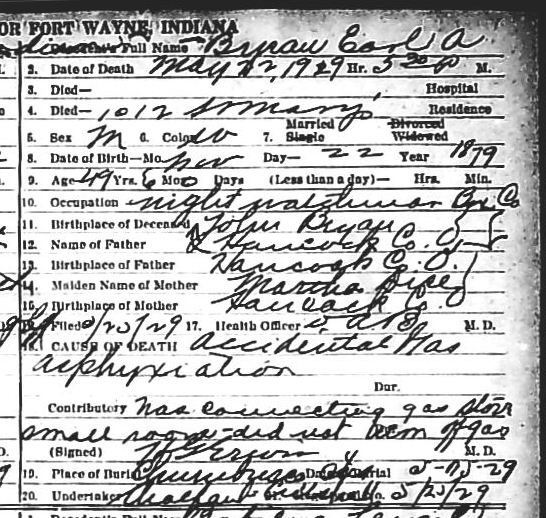 OR FORT WAYNE, INDIANA
Decedent's Full Name Bryan Earl A
2. Date of Death May 22, 1929 Hr. 5 30 P M.
3. Died— Hospital
4. Died— 1012 St Marys Residence
5. Sex M 6. Color W 7. Married Single Divorced Widowed
8. Date of Birth—Mo. Nov Day— 22 Year 1879
9. Age 49 Yrs. 6 Mo. 0 Days (Less than a day)— Hrs. Min.
10. Occupation night watchman Box Co
11. Birthplace of Decedent John Bryan
12. Name of Father Hancock Co. O.
13. Birthplace of Father Hancock Co. O.
14. Maiden Name of Mother Martha
15. Birthplace of Mother Hancock Co.
Filed 5/23/29 17. Health Officer M. D.
18. CAUSE OF DEATH Accidental Gas
asphyxiation
Dur.
Contributory was connecting gas stove
small room - did not turn off gas
(Signed) M. D.
19. Place of Burial Date of Burial 5-25-29
20. Undertaker 5/23/29